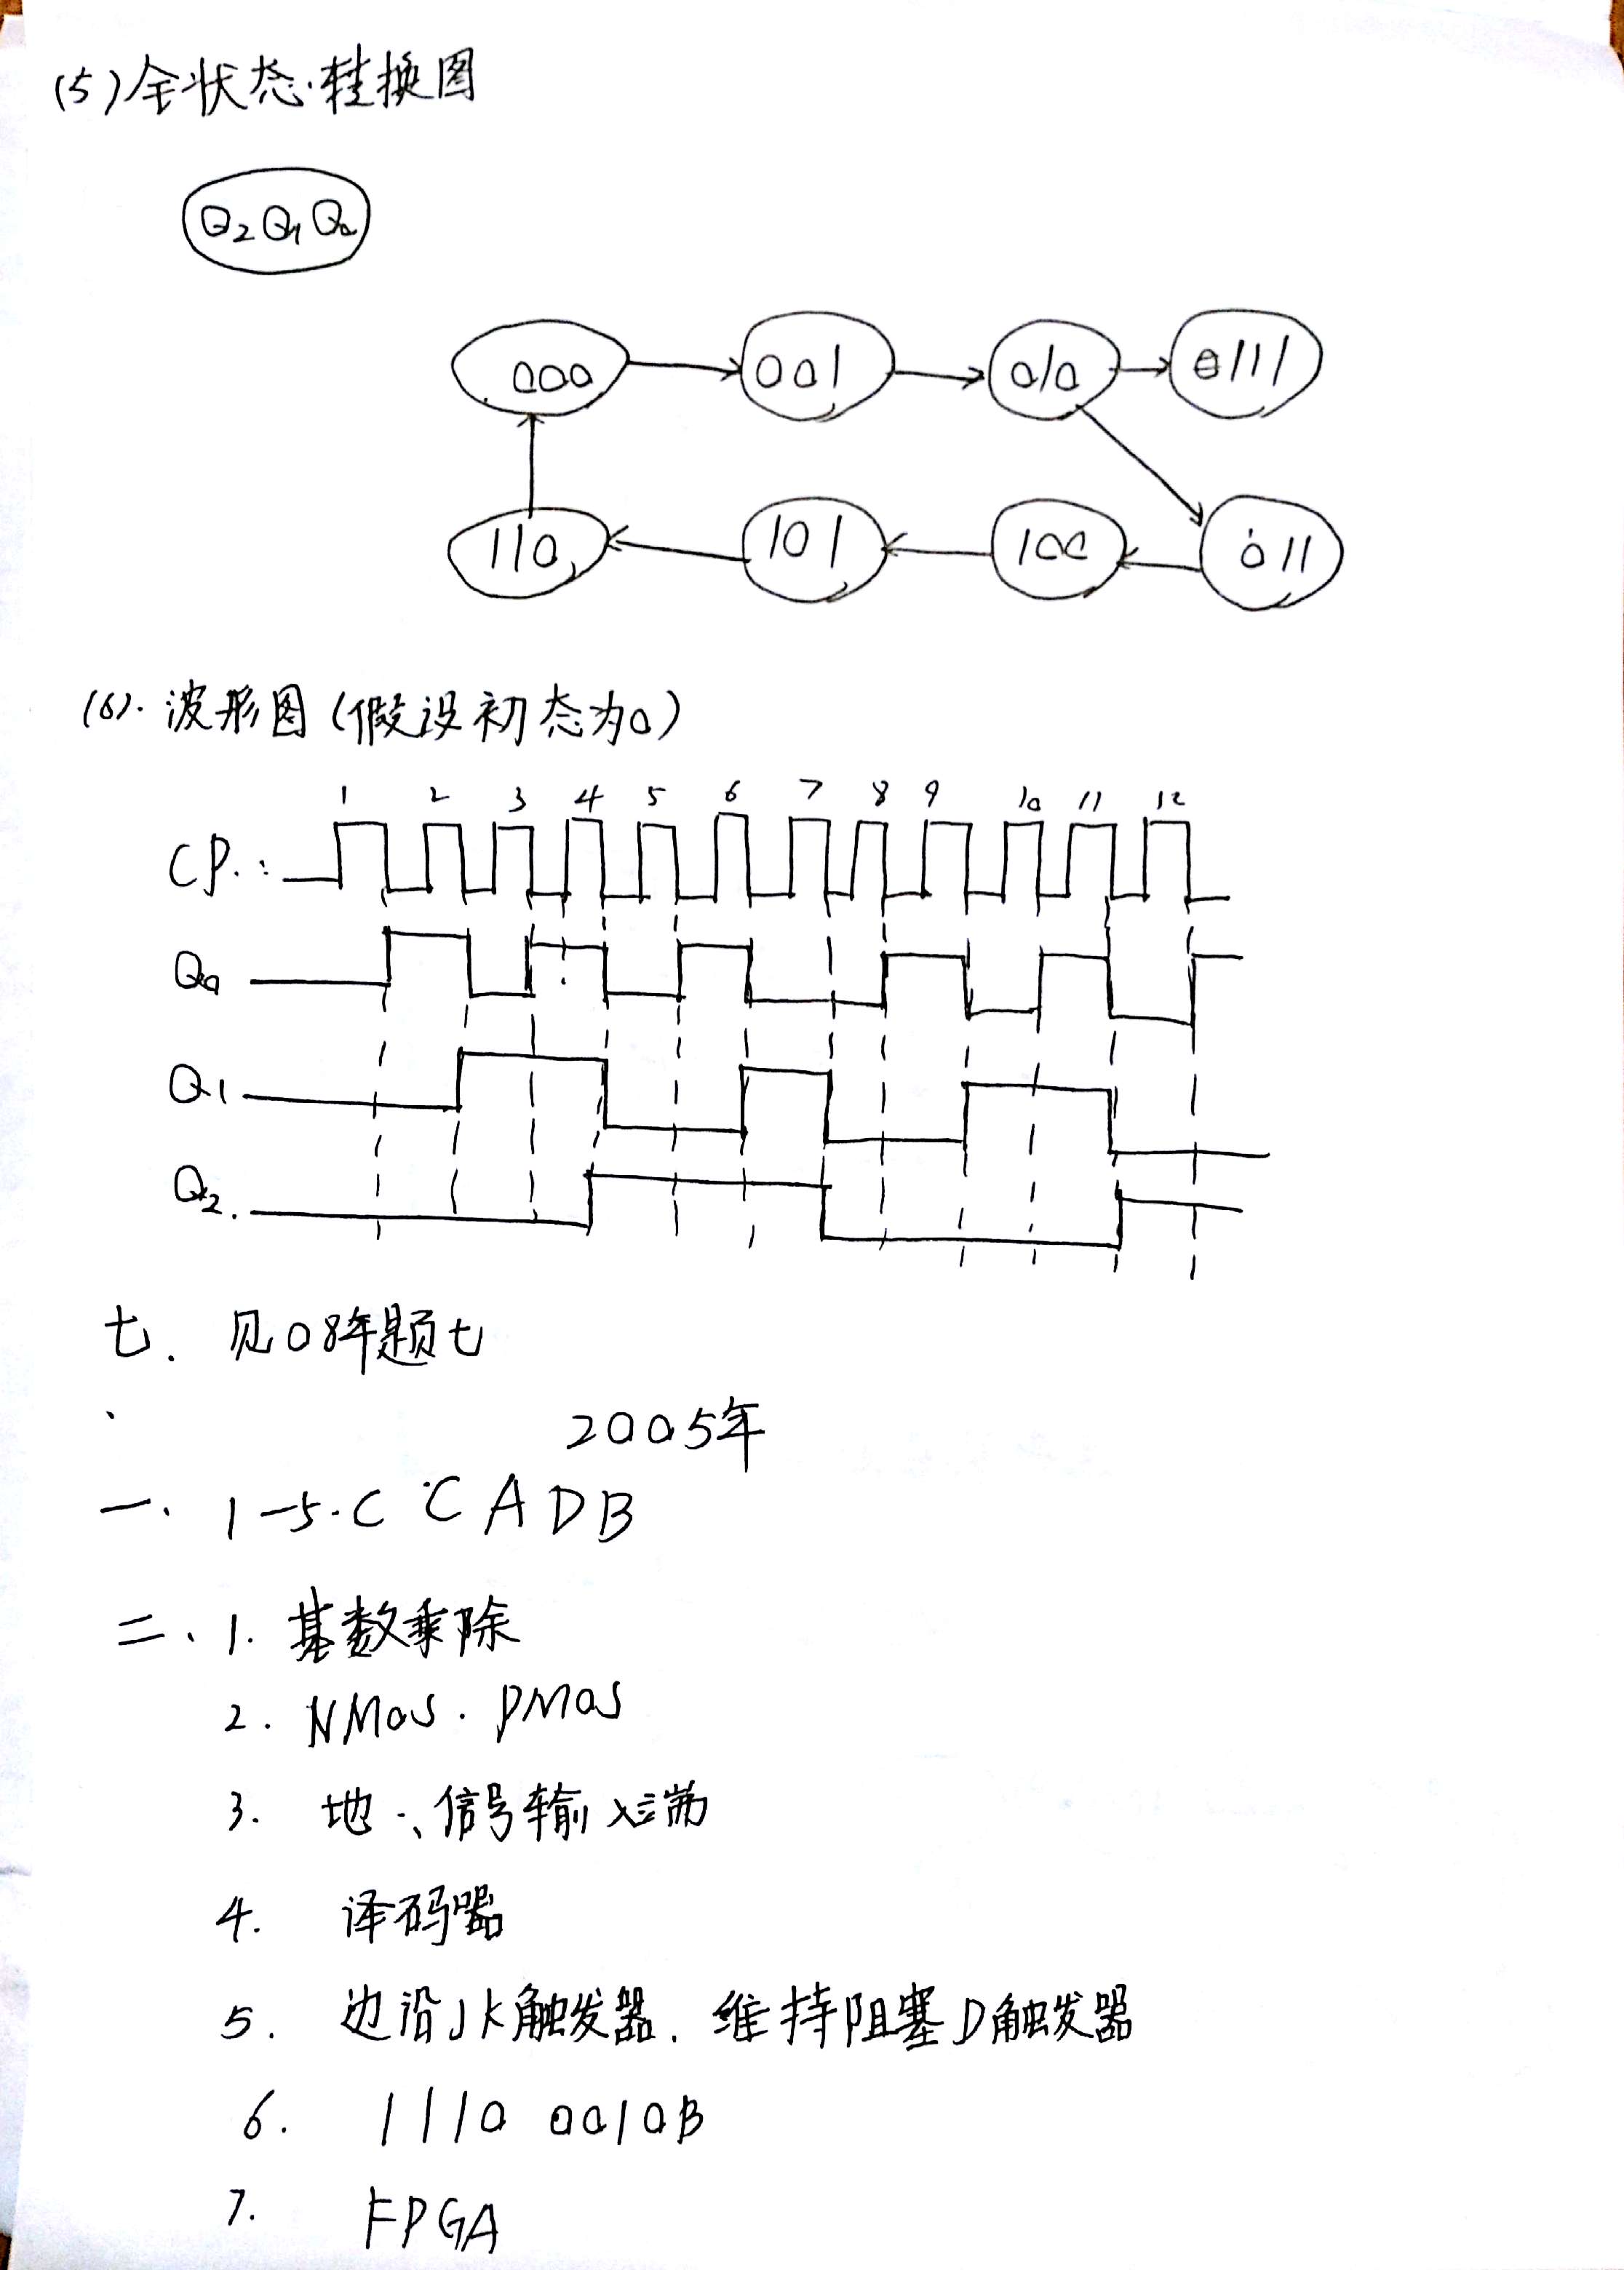 (5)全状态转换图
Q2Q1Q0
000 001 010 0111
110 101 100 011
(6).波形图(假设初态为0)
1 2 3 4 5 6 7 8 9 10 11 12
CP.:
Q0
Q1
Q2.
七. 见08年题七
2005年
一、1-5.C C A D B
二、1. 基数乘除
2. NMOS. PMOS
3. 地、信号输入端
4. 译码器
5. 边沿JK触发器. 维持阻塞D触发器
6. 1110 0010B
7. FPGA